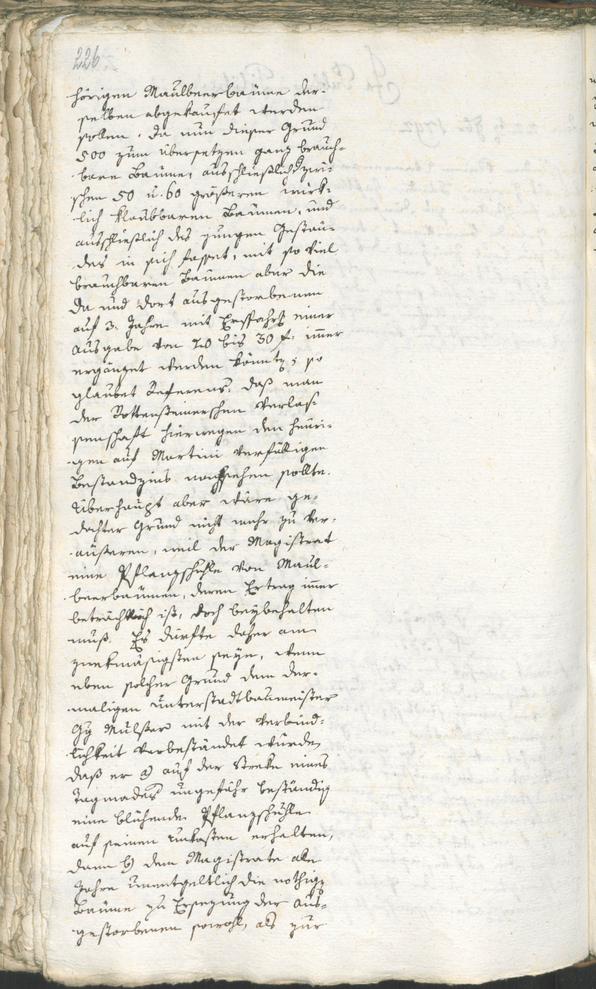 226.
hörigen Maulbeerbäume der-
selben abgekaufet werden
sollen. Da nun dieser Grund
500 zum Übersetzen ganz brauch-
bare Bäume, ausschließlich zwi-
schen 50 u. 60 größeren wirk-
lich klaubbaren Bäumen, und
ausschließlich des jungen Gestau-
des in sich fasset, mit so viel
brauchbaren Bäumen aber die
da und dort ausgestorbenen
auf 3. Jahre mit Ersparung einer
Ausgabe von 20 bis 30 f. immer
ergänzet werden könnten; so
glaubet Referens, daß man
der Rottensteinerschen Verlas-
senschaft hierwegen den heuri-
gen auf Martini verfälligen
Bestandzins nachsehen sollte.
Überhaupt aber wäre ge-
dachter Grund nicht mehr zu ver-
äußeren, weil der Magistrat
eine Pflanzschuhle von Maul-
beerbäumen, deren Ertrag immer
beträchtlich ist, doch beybehalten
muß. Es dürfte daher am
zwekmäsigsten seyn, wenn
eben solcher Grund dem der-
maligen Unterstadtbaumeister
Gg Mülser mit der Verbind-
lichkeit verbeständet würde,
daß er a) auf der Streke eines
Tagmades ungefähr beständig
eine blühende Pflanzschuhle
auf seinen Unkosten erhalten,
dann b) dem Magistrate alle
Jahre unentgeltlich die nöthigen
Bäume zu Ersezung der aus-
gestorbenen sowohl, als zur